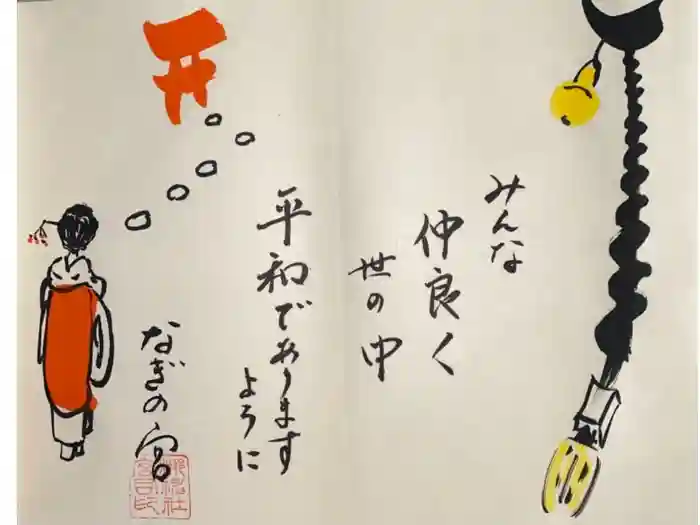 みんな
仲良く
世の中
平和であります
ように
なぎの宮